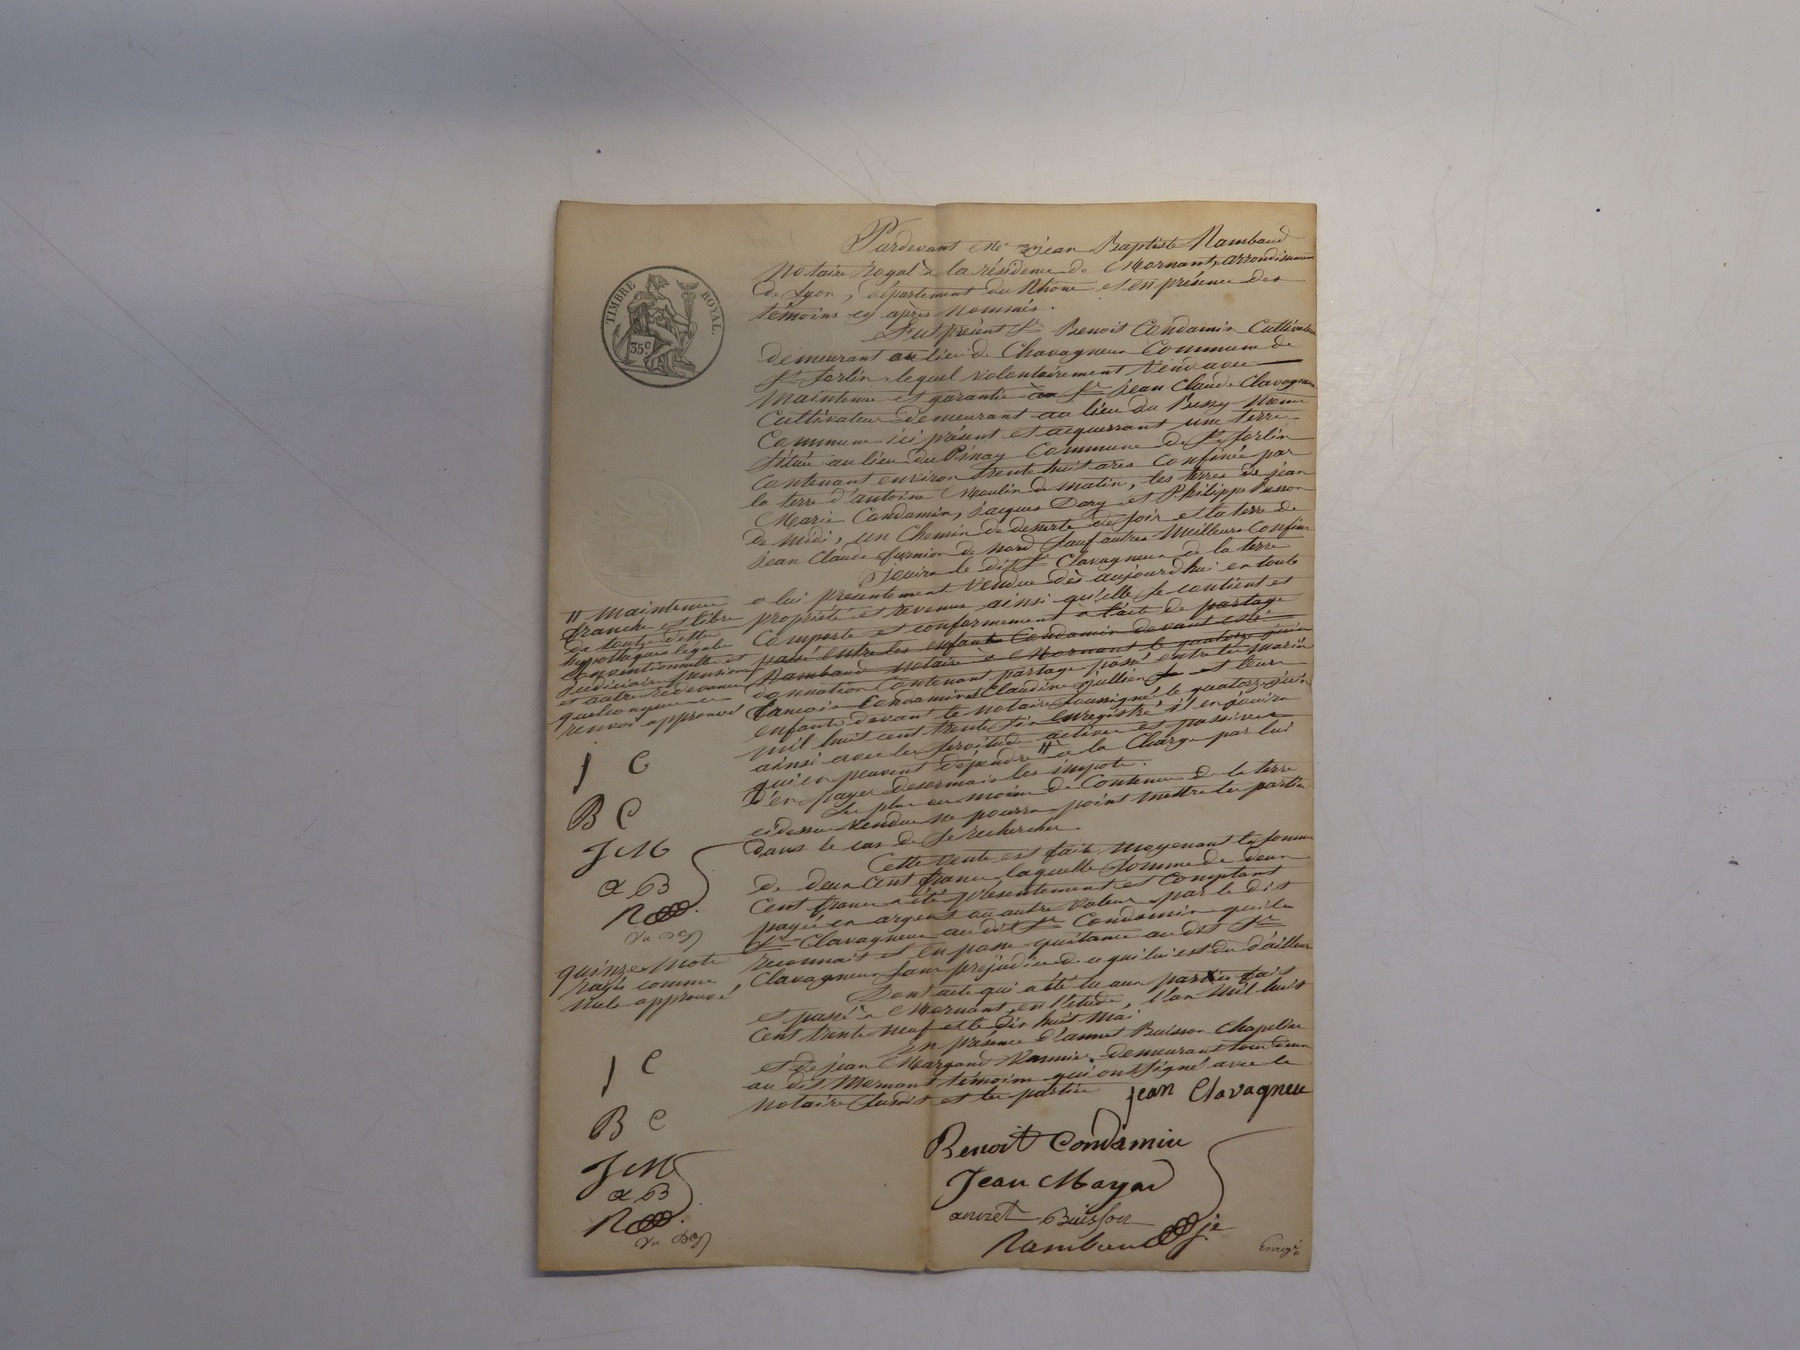 Pardevant Me Jean Baptiste Rambaud
notaire royal à la résidence de Mornant, arrondissement
de Lyon, département du Rhône et en présence des
témoins cy après nommés.
TIMBRE ROYAL
35c
Fut présent Sr Benoit Condamin Cultivateur
demeurant au lieu de Chavagneux Commune de
St Sorlin, lequel volontairement vend avec
maintenue et garantie au Sr Jean Claude Clavagneux
Cultivateur demeurant au lieu du Bessy même
Commune ici présent et acquerrant une terre
située au lieu du Pinay Commune de St Sorlin
contenant environ trente huit ares confinée par
la terre d'antoine Moulin de matin, les terres de jean
Marie Condamin, Jacques Dory et Philippe
de midi, un Chemin de desserte de soir et la terre de
Jean Claude furnion de nord sauf autres meilleurs confins
Jouira le dit Sr Clavagneux de la terre
a lui présentement vendue dès aujourd'hui en toute
propriété et revenus ainsi qu'elle se contient et
comporte et conformement à l'acte de partage
passé entre les enfants Condamin devant
Rambaud notaire à Mornant le quatorze juin
donnation contenant partage passé entre les mariés
francois Condamin et Claudine Jullien et leurs
enfants devant le notaire soussigné le quatorze juin
mil huit cent trente six enregistré, d'en jouira
ainsi avec les servitudes actives et passives
qui en peuvent dépendre # à la Charge par lui
d'en payer desormais les impots.
# maintenue
franche et libre
de toute dette
hypothèques légale
conventionnelle et
judiciaire pension
et autre redevance
quelconque
renvoi approuvé
J C
B C
J M
a B
R
Le plus ou moins de Contenue de la terre
cidessus vendue ne pourra point mettre les parties
dans le cas de se rechercher.
Cette vente est faite moyenant la somme
de deux cent francs laquelle somme de deux
cent francs a été présentement et comptant
payée en argent ou autre valeur par le dit
Sr Clavagneux au dit Sr Condamin qui le
reconnait et en passe quitance au dit Sr
Clavagneux sans préjudice de ce qui lui est du d'ailleurs
quinze mots
rayés comme
nuls approuvé
Dont acte qui a été lu aux parties fait
et passé à Mornant en l'étude, l'an mil huit
cent trente neuf et le dix huit mai
En présence d'annet Buisson Chapelier
et de jean Margand Vannier demeurant tous deux
au dit Mornant témoins qui ont signé avec le
notaire susdit et les parties
J C
B C
J M
a B
R
jean Clavagneu
Benoit Condamin
Jean Mayad
annet Buisson
Rambaud
Enregé